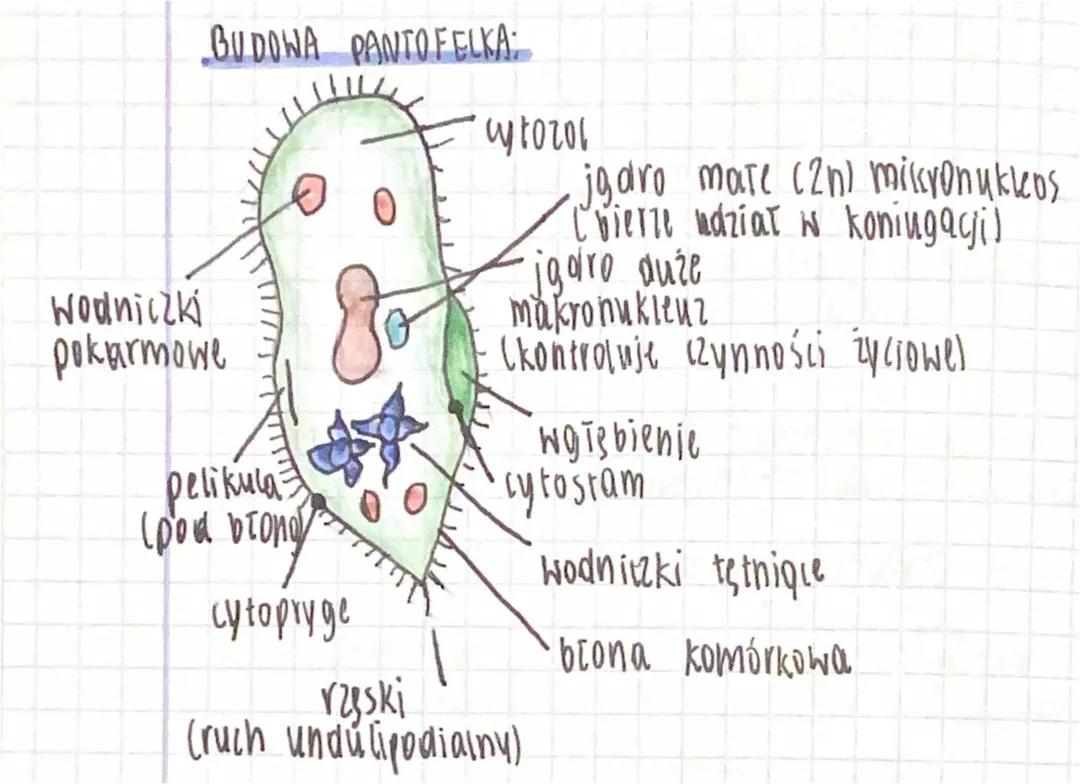 BUDOWA PANTOFELKA:
cytozol
jądro małe (2n) mikronukleos
(bierze udział w koniugacji)
jądro duże
makronukleuz
(kontroluje czynności życiowe)
wodniczki
pokarmowe
wgłębienie
cytostam
pelikula
(pod błoną)
wodniczki tętniące
cytopryge
błona komórkowa
rzęski
(ruch undulipodialny)